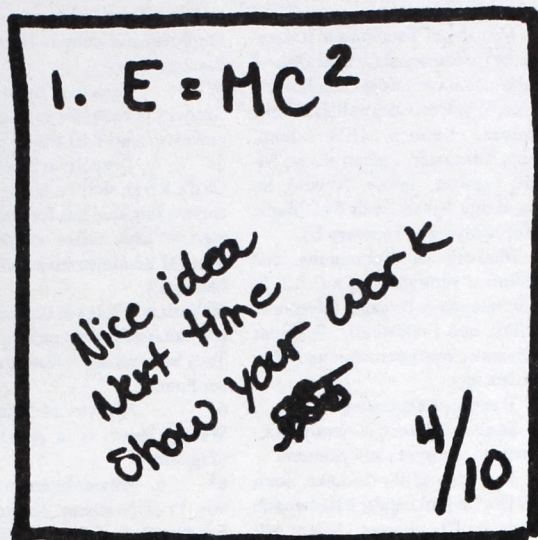 1. E = MC²
Nice idea
Next time
show your work
4/10